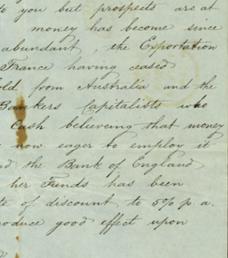 to you but prospects are at
money has become since
abundant, the Exportation
France having ceased
Gold from Australia and the
Bankers Capitalists who
Cash believing that money
now eager to employ it
and the Bank of England
her Funds has been
rate of discount to 5% p a.
produce good effect upon